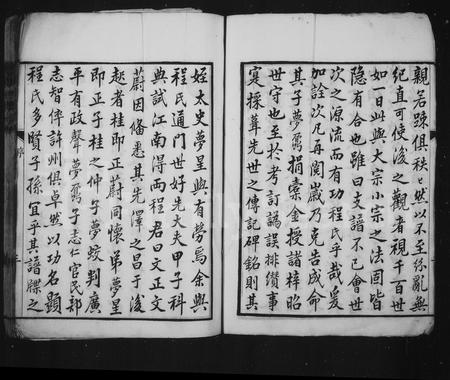 親若疎俱秩〻然以不至紛亂無
紀直可使後之觀者視千百世
如一日此與大宗小宗之法固皆
隐有合也雖曰支譜不已會世
次之源流而有功程氏乎哉爰
加詮次凡再閱歲乃克告成命
其子夢鳶捐橐金授諸梓昭
世守也至於考訂譌誤排纘事
寔採葺先世之傳記碑銘則其
姪太史夢星與有勞焉余與
程氏通門世好先大夫甲子科
典試江南得兩程君曰文正文
蔚因俻悉其先澤之昌于後
越者桂即正蔚同懷弟夢星
即正子桂之仲子夢蛟判廣
平有政聲夢鳶子志仁官民部
志智倅許州俱卓然以功名顯
程氏多賢子孫宜乎其譜牒之
序
三